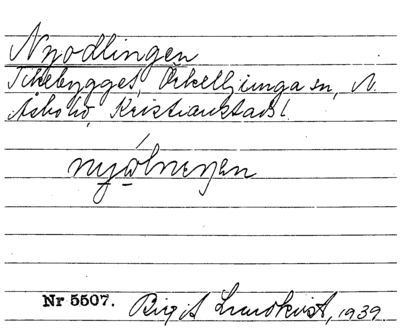 Nyodlingen
Tikebygget, Örkelljunga sn, N.
Åsbo hd, Kristianstads l.
nyo̱lneŋen
Nr 5507. Birgit Lundkvist, 1939.